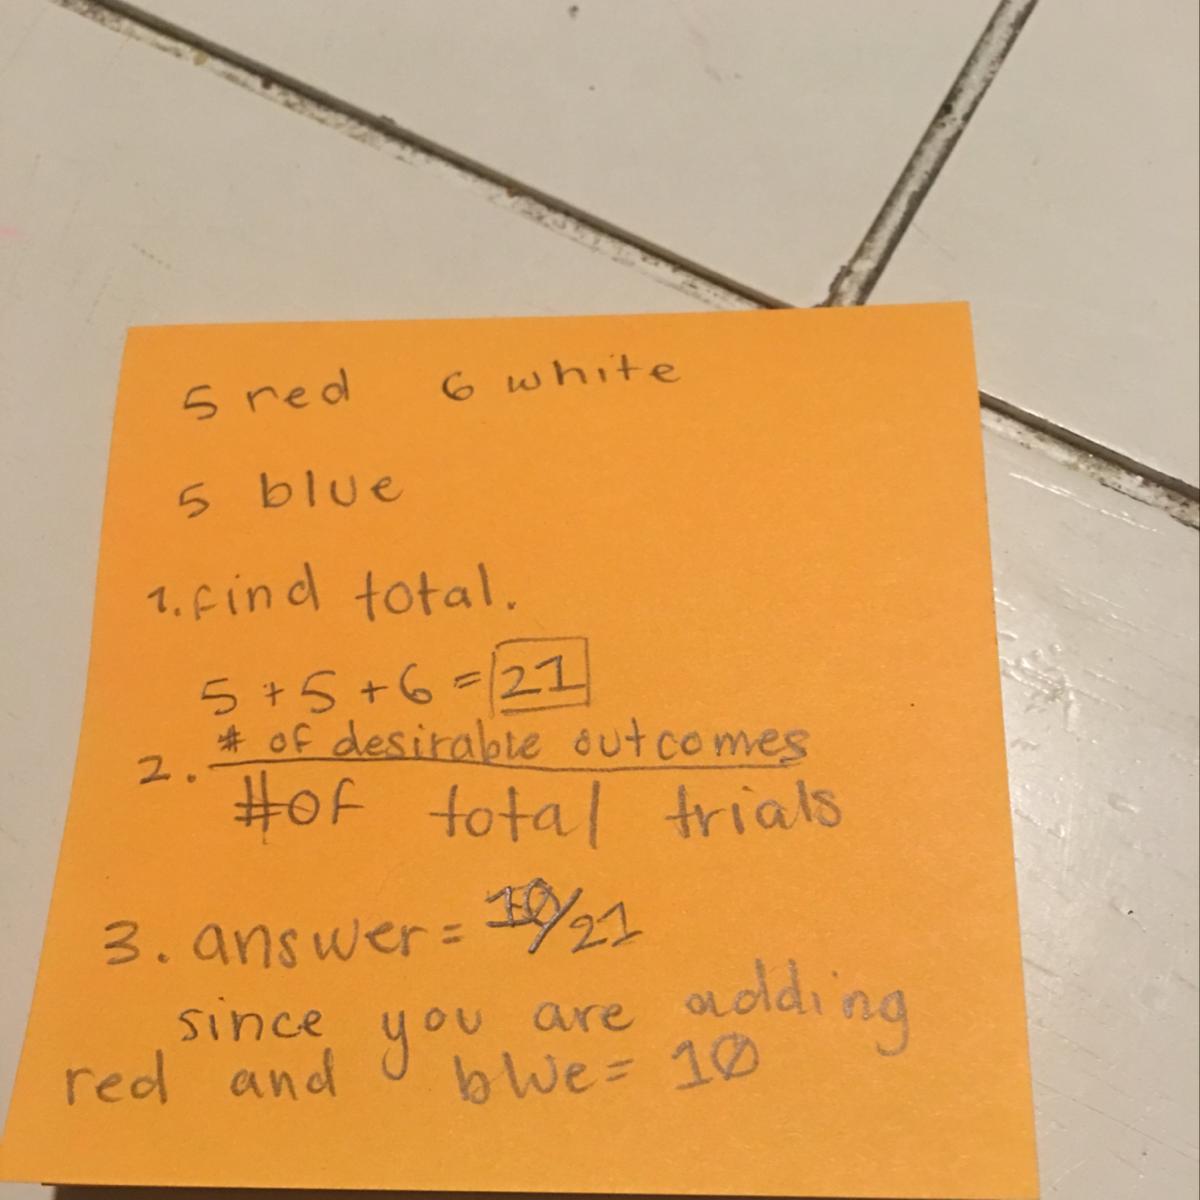 5 red 6 white
5 blue
1. find total.
5 + 5 + 6 = 21
2. # of desirable outcomes
#of total trials
3. answer = 10/21
since you are adding
red and blue = 10